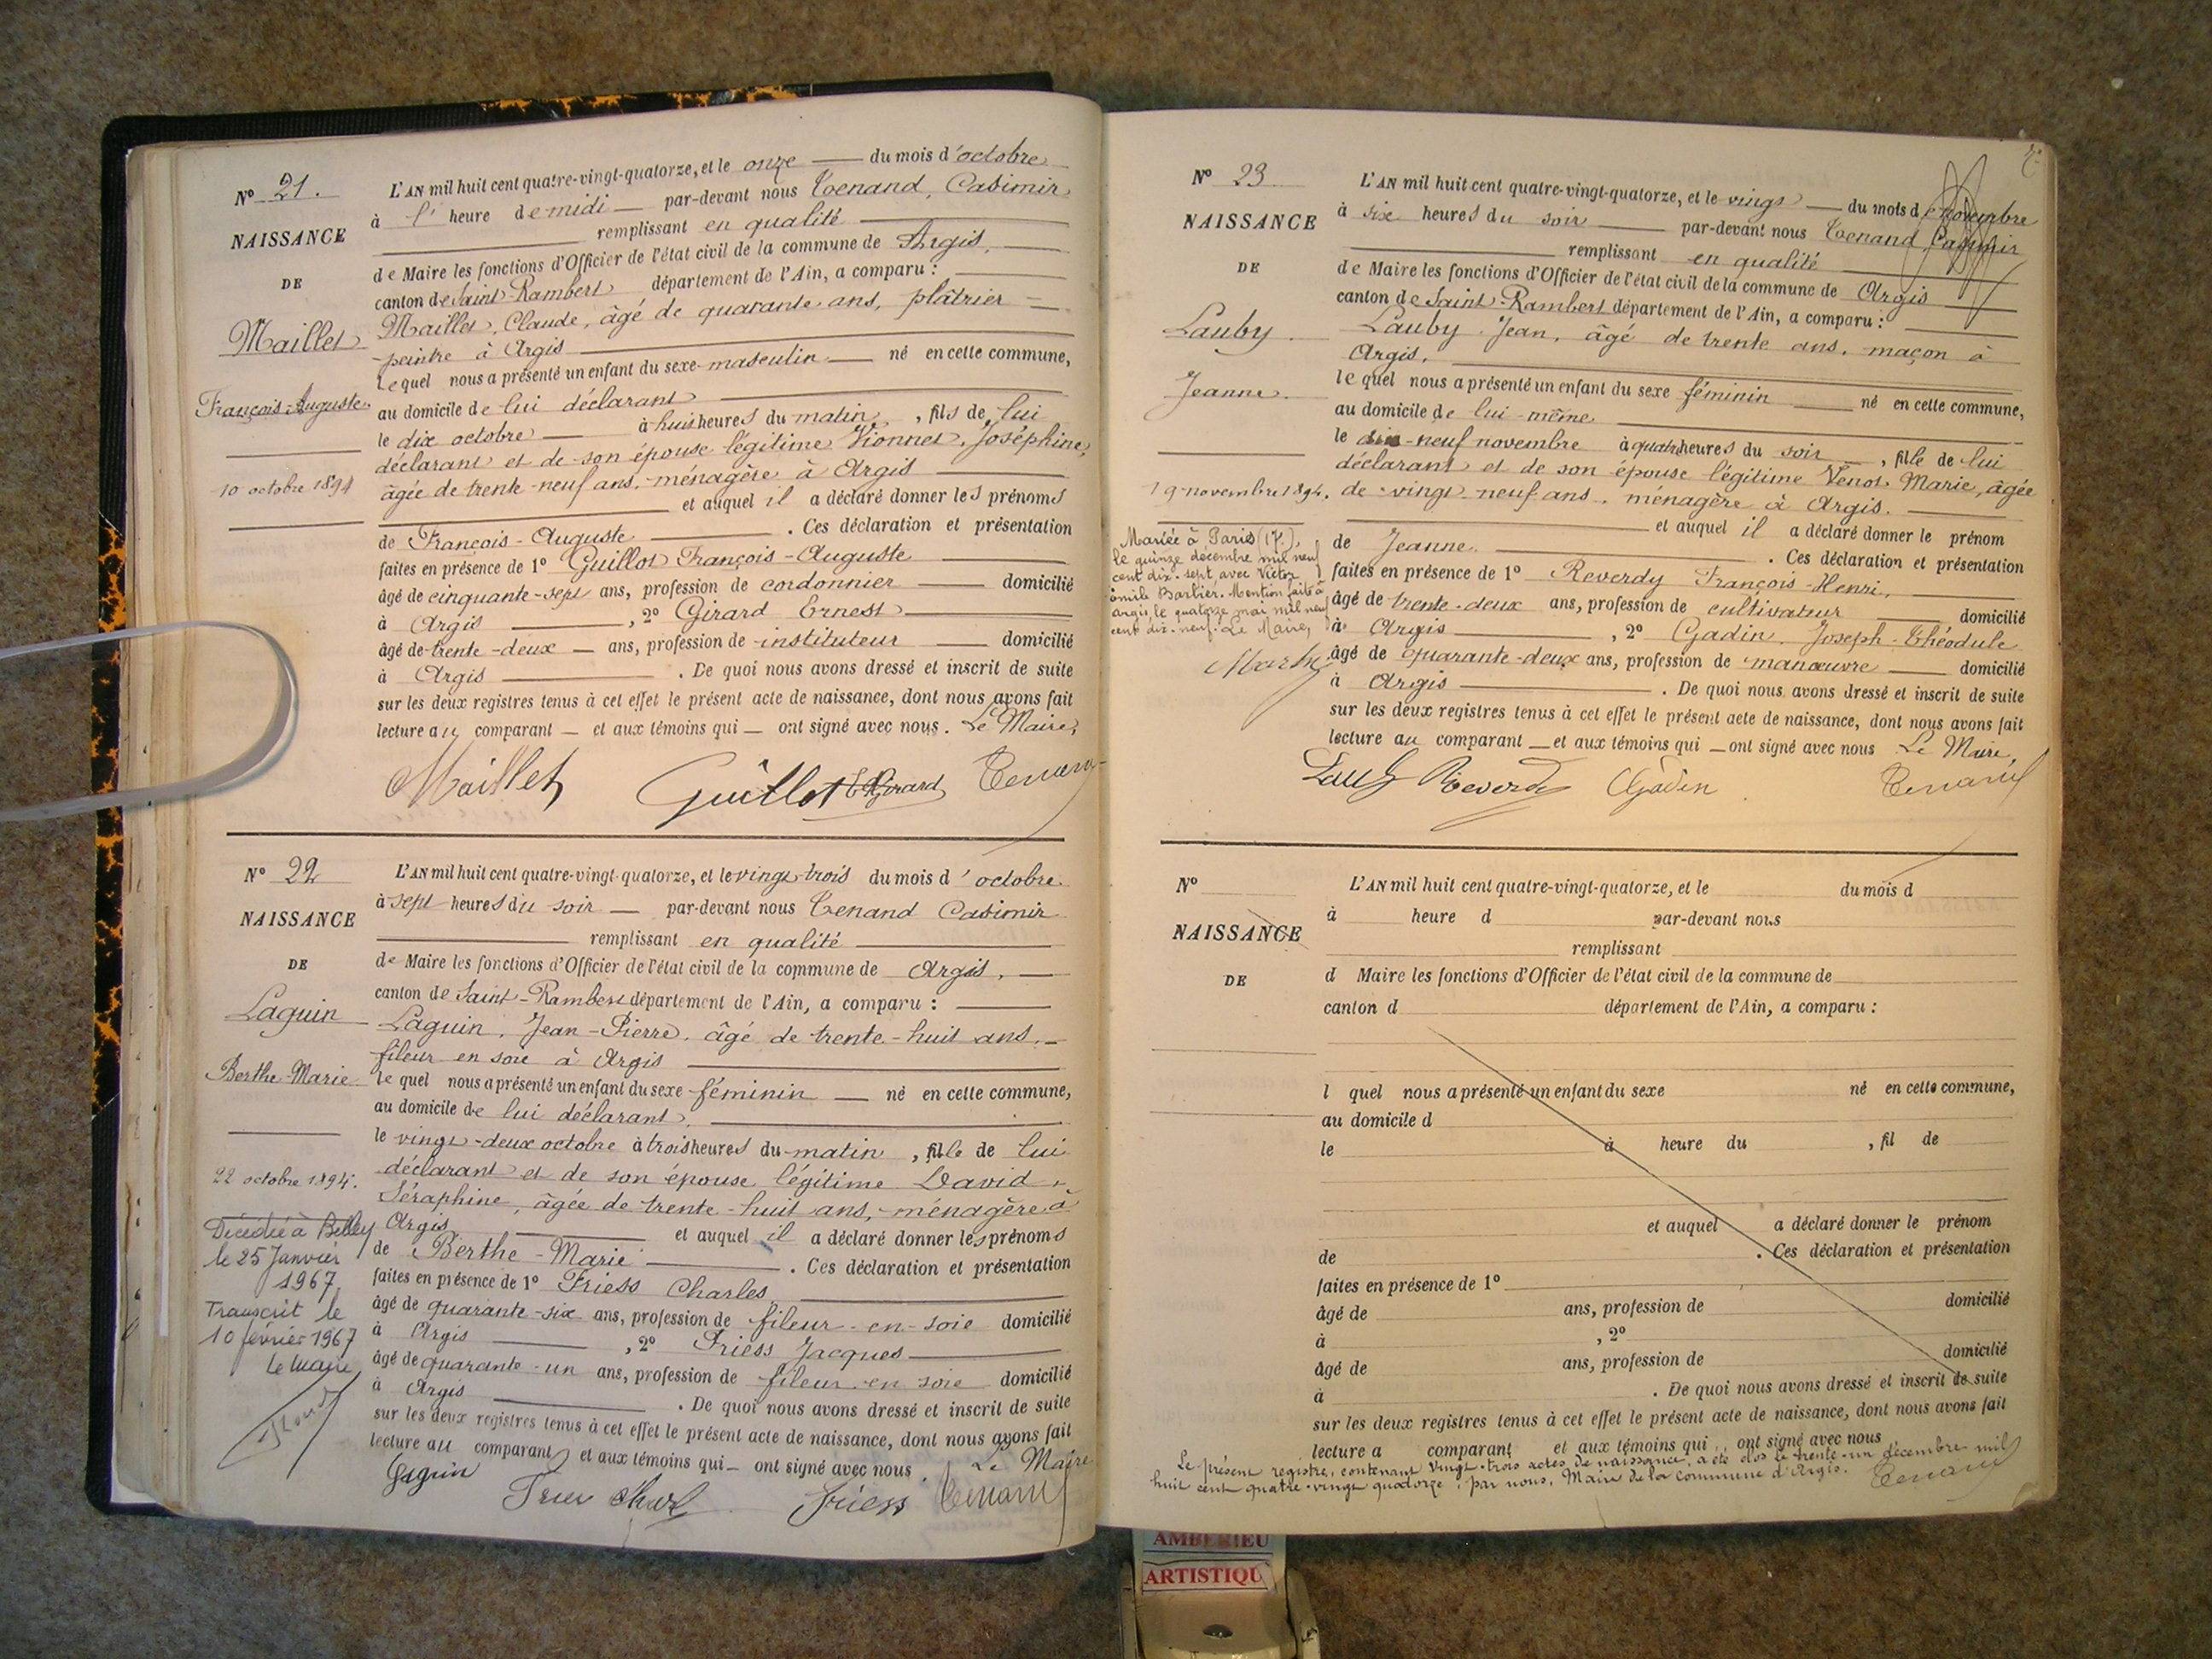 N° 21.
NAISSANCE
DE
Maillet
François-Auguste
10 octobre 1894
L'AN mil huit cent quatre-vingt-quatorze, et le onze du mois d'octobre
à l' heure de midi par-devant nous Tenand, Casimir
remplissant en qualité
de Maire les fonctions d'Officier de l'état civil de la commune de Argis,
canton de Saint-Rambert département de l'Ain, a comparu :
Maillet, Claude, âgé de quarante ans, plâtrier =
peintre à Argis
Lequel nous a présenté un enfant du sexe masculin né en cette commune,
au domicile de lui déclarant
le dix octobre à huit heures du matin, fils de lui
déclarant et de son épouse légitime Vionnet, Joséphine,
âgée de trente-neuf ans, ménagère à Argis
et auquel il a déclaré donner les prénoms
de François-Auguste . Ces déclaration et présentation
faites en présence de 1° Guillot François-Auguste
âgé de cinquante-sept ans, profession de cordonnier domicilié
à Argis , 2° Girard Ernest
âgé de trente-deux ans, profession de instituteur domicilié
à Argis . De quoi nous avons dressé et inscrit de suite
sur les deux registres tenus à cet effet le présent acte de naissance, dont nous avons fait
lecture au comparant et aux témoins qui ont signé avec nous. Le Maire,
Maillet Guillot E. Girard Tenand
N° 22
NAISSANCE
DE
Laguin
Berthe-Marie
22 octobre 1894.
Décédée à Belley
le 25 Janvier
1967
Transcrit le
10 février 1967
Le Maire
L'AN mil huit cent quatre-vingt-quatorze, et le vingt-trois du mois d'octobre
à sept heures du soir par-devant nous Tenand Casimir
remplissant en qualité
de Maire les fonctions d'Officier de l'état civil de la commune de Argis,
canton de Saint-Rambert département de l'Ain, a comparu :
Laguin, Jean-Pierre, âgé de trente-huit ans,
fileur en soie à Argis
le quel nous a présenté un enfant du sexe féminin né en cette commune,
au domicile de lui déclarant,
le vingt-deux octobre à trois heures du matin, fille de lui
déclarant et de son épouse légitime David,
Séraphine, âgée de trente-huit ans, ménagère à
Argis et auquel il a déclaré donner les prénoms
de Berthe-Marie . Ces déclaration et présentation
faites en présence de 1° Friess Charles
âgé de quarante-six ans, profession de fileur-en-soie domicilié
à Argis , 2° Friess Jacques
âgé de quarante-un ans, profession de fileur-en soie domicilié
à Argis . De quoi nous avons dressé et inscrit de suite
sur les deux registres tenus à cet effet le présent acte de naissance, dont nous avons fait
lecture au comparant et aux témoins qui ont signé avec nous. Le Maire
Friess Tenand
N° 23
NAISSANCE
DE
Lauby
Jeanne.
19 novembre 1894.
Mariée à Paris (17e),
le quinze décembre mil neuf
cent dix-sept avec Victor
Emile Barlier. Mention faite à
Argis le quatorze mai mil neuf
cent dix-neuf. Le Maire,
L'AN mil huit cent quatre-vingt-quatorze, et le vingt du mois de novembre
à six heures du soir par-devant nous Tenand, Casimir
remplissant en qualité
de Maire les fonctions d'Officier de l'état civil de la commune de Argis
canton de Saint-Rambert département de l'Ain, a comparu :
Lauby, Jean, âgé de trente ans, maçon à
Argis,
le quel nous a présenté un enfant du sexe féminin né en cette commune,
au domicile de lui-même
le dix-neuf novembre à quatre heures du soir, fille de lui
déclarant et de son épouse légitime Venot Marie, âgée
de vingt-neuf ans, ménagère à Argis.
et auquel il a déclaré donner le prénom
de Jeanne. . Ces déclaration et présentation
faites en présence de 1° Reverdy François-Henri,
âgé de trente-deux ans, profession de cultivateur domicilié
à Argis , 2° Gadin Joseph-Théodule
âgé de quarante-deux ans, profession de manœuvre domicilié
à Argis . De quoi nous avons dressé et inscrit de suite
sur les deux registres tenus à cet effet le présent acte de naissance, dont nous avons fait
lecture au comparant et aux témoins qui ont signé avec nous Le Maire,
Lauby Reverdy Gadin Tenand
N°
NAISSANCE
DE
L'AN mil huit cent quatre-vingt-quatorze, et le du mois d
à heure d par-devant nous
remplissant
d Maire les fonctions d'Officier de l'état civil de la commune de
canton d département de l'Ain, a comparu :
l quel nous a présenté un enfant du sexe né en cette commune,
au domicile d
le à heure du , fil de
et auquel a déclaré donner le prénom
de . Ces déclaration et présentation
faites en présence de 1°
âgé de ans, profession de domicilié
à , 2°
âgé de ans, profession de domicilié
à . De quoi nous avons dressé et inscrit de suite
sur les deux registres tenus à cet effet le présent acte de naissance, dont nous avons fait
lecture a comparant et aux témoins qui ont signé avec nous
Le présent registre, contenant vingt-trois actes de naissance, a été clos le trente-un décembre mil
huit cent quatre-vingt quatorze, par nous, Maire de la Commune d'Argis. Tenand
AMBERIEU
ARTISTIQU